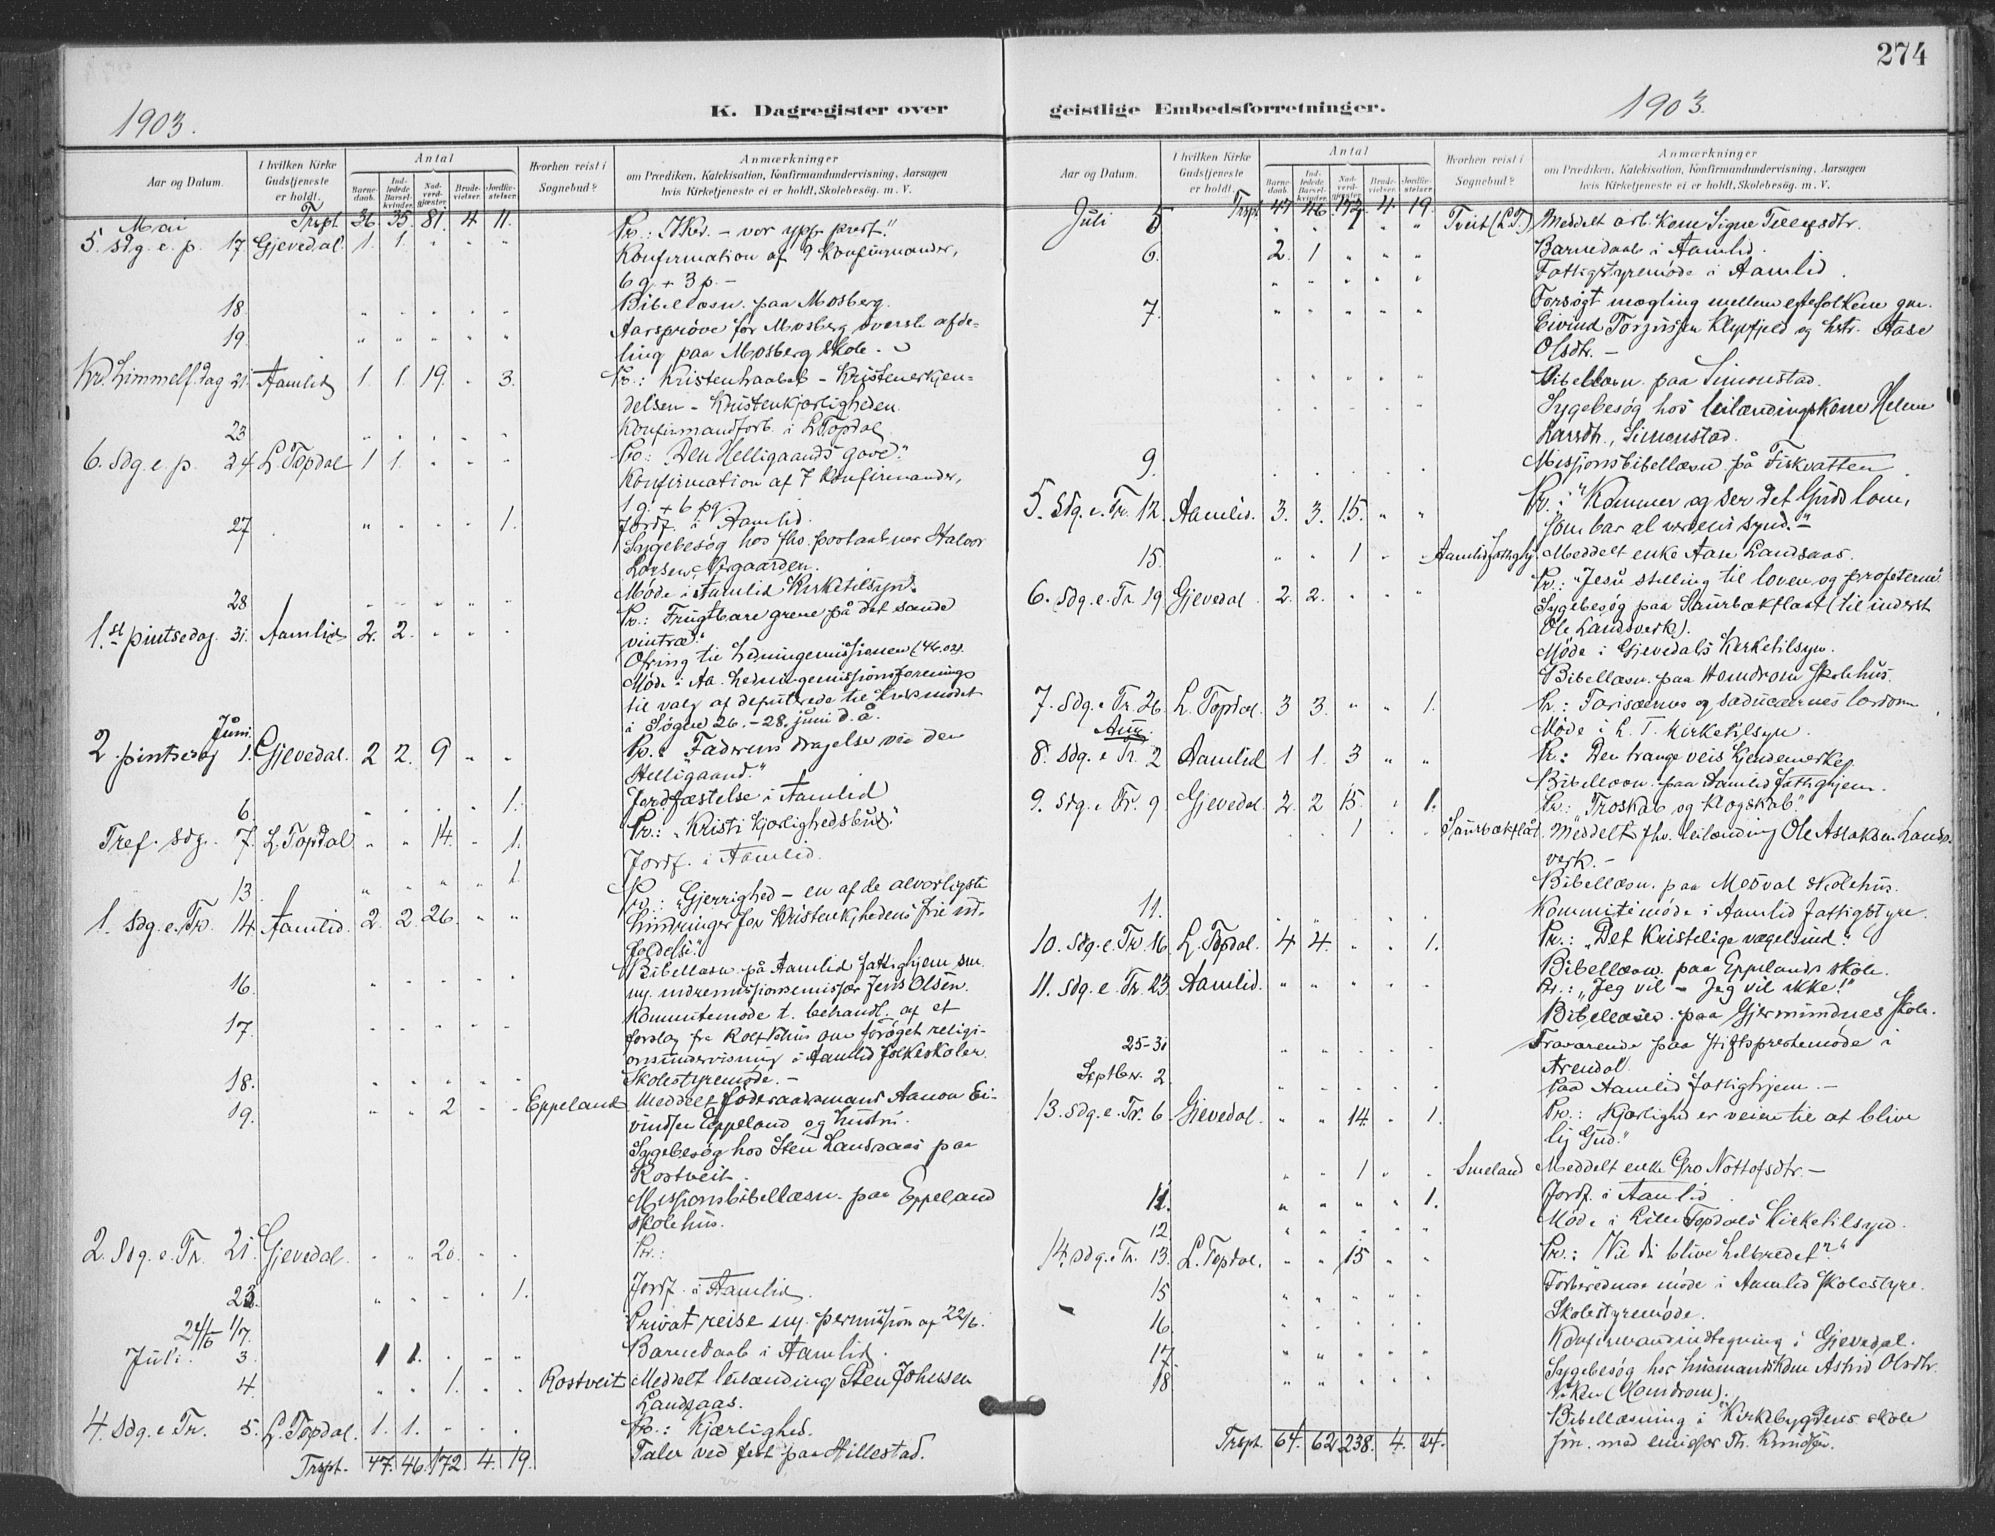 274
1903.
K. Dagregister over
geistlige Embedsforretninger.
1903.
Aar og Datum.
I hvilken Kirke
Gudstjeneste
er holdt.
Antal
Barne-
daab.
Ind-
ledede
Barsel-
kvinder.
Nad-
verd-
gjæster.
Brude-
vielser.
Jordfæ-
stelser.
Hvorhen reist i
Sognebud?
Anmærkninger
om Prædiken, Katekisation, Konfirmandundervisning, Aarsagen
hvis Kirketjeneste ei er holdt, Skolebesøg. m. V.
Mai Trspt. 36. 35. 81. 4. 11.
5. sdg. e. p. 17. Gjevedal. 1. 1. " " "
Konfirmation af 9 Konfirmander,
6 g. + 3 p. -
18. " " " " " Bibellæsn. paa Mosberg.
19. " " " " " Aarsprøve for Mosberg øverste afde-
ling paa Mosberg skole.
Kr. Himmelf.dag 21. Aamlid 1. 1. 19. " 3. Pr.: Kristenhaabet - Kristenerkjen-
delsen - Kristenkjærligheden.
23 " " " " " Konfirmandforb. i L. Topdal
6. sdg. e. p. 24. L. Topdal 1 1. " " " Pr.: "Den Helligaands gave."
Konfirmation af 7 Konfirmander,
1 g. + 6 pg.
27 " " " " 1. Jordf. i Aamlid.
Sygebesøg hos fhv. postaabner Halvor
Larsen,
Møde i Aamlid Kirketilsyn.
28 " " " " "
1.st pintsedag 31. Aamlid 2. 2. " " " Pr.: "Frugtbare grene på det sande
vintræ."
Ofring til Hedningemissionen (46.02).
Møde i Aa. Hedningemissionsforenings
til valg af deputerede til kredsmødet
i Søgne 26. - 28. juni d. å.
Juni.
2 pintsedag 1. Gjevedal. 2 2. 9 " " Pr.: "Faderens dragelse ved den
Helligaand."
6. " " " " 1. Jordfæstelse i Aamlid
Tref. sdg. 7. L. Topdal " " 14. " 1. Pr.: "Kristi Kjærlighedsbud."
13. " " " " 1. Jordf. i Aamlid.
1. sdg. e. Tr. 14. Aamlid. 2. 2. 26. " " Pr.: "Gjerrighed - en af de alvorligste
hindringer for Kristenkjhedens frie ud-
foldelse."
16. " " " " " Bibellæsn. på Aamlid fattighjem sm.
m. indremissionsemissær Jens Olsen.
17. " " " " " Kommitemøde t. behandl. af et
forslag fra Rolf om forøget religi-
onsundervisning i Aamlid folkeskoler.
18. " " " " " Skolestyremøde. -
19. " " 2 " " Eppeland Meddelt føderaadsmand Aanon Ei-
vindsen Eppeland og hustru.
Sygebesøg hos Sten Landsaas paa
Rostveit.
Missionsbibellæsn. paa Eppeland
skolehus.
2. sdg. e. Tr. 21. Gjevedal. " " 20. " " Pr.:
23. " " " " 1. Jordf. i Aamlid.
24/6 1/7. Privat reise m. permission af 22/6.
Juli. 3. 1 1. " " Barnedaab i Aamlid.
4. " " 1. " " Rostveit Meddelt leilænding Sten Johnsen
Landsaas.
4. sdg. e Tr. 5. L. Topdal. 1. 1. " " " Pr.: Kjærlighed.
Trspt. 47. 46. 172 4. 19. Taler ved fest paa Hillestad.
Aar og Datum.
I hvilken Kirke
Gudstjeneste
er holdt.
Antal
Barne-
daab.
Ind-
ledede
Barsel-
kvinder.
Nad-
verd-
gjæster.
Brude-
vielser.
Jordfæ-
stelser.
Hvorhen reist i
Sognebud?
Anmærkninger
om Prædiken, Katekisation, Konfirmandundervisning, Aarsagen
hvis Kirketjeneste ei er holdt, Skolebesøg. m. V.
Trspt 47 46 172 4. 19.
Juli 5 " " " " Tveit (L.T.) Meddelt arb. kone Signe Tellefsdtr.
6. 2. 1 " " " Barnedaab i Aamlid.
" " " " Fattigstyremøde i Aamlid.
7. " " " " " Forsøgt mægling mellem egtefolkene gm.
Eivind Torjussen Klepfjeld og hstr. Aase
Olsdtr. -
" " " " " Bibellæsn. paa Simonstad.
" " " " " Sygebesøg hos leilændingskone Helene
Larsdtr., Simonstad.
9. " " " " " Missionsbibellæsn på Fiskvatten.
5. sdg. e. Tr. 12. Aamlid. 3. 3. 15. " " Pr.: "Kommer og ser det Guds lam,
som bar al verdens synd."
15. " " 1 " " Aamlid fattighj. Meddelt enke Aase Landsaas.
6. sdg. e. Tr. 19. Gjevedal 2. 2. " " " Pr.: "Jesu stilling til loven og profeterne."
Sygebesøg paa Saurbækflaat (til inderst
Ole Landsverk).
Møde i Gjevedals Kirketilsyn.
Bibellæsn. paa Homdrom skolehus.
7. sdg. e Tr. 26. L. Topdal. 3 3. " " 1. Pr.: Farisæernes og saducæernes lærdom
Møde i L. T. Kirketilsyn.
Aug.
8. sdg. e Tr. 2 Aamlid 1 1. 3 " " Pr.: Den trange veis kjendemerke
Bibellæsn. paa Aamlid fattighjem.
9. sdg. e Tr. 9. Gjevedal. 2. 2 15. " 1. Pr.: "Troskab og klogskab"
" " 1 " " Saurbækflåt. Meddelt fhv. leilænding Ole Aslaksen Lands-
verk. -
Bibellæsn. paa Mesval skolehus.
11. " " " " " Kommitemøde i Aamlid fattigstyre.
10. sdg. e Tr 16. L. Topdal. 4 4. " " 1. Pr.: "Det kristelige vægelsind."
Bibellæsn. paa Eppelands skole.
11. sdg. e. Tr. 23. Aamlid. " " " " " Pr.: "Jeg vil - Jeg vil ikke!"
Bibellæsn. paa Gjermundnes skole.
25-31 " " " " " Fraværende paa stiftsprestemøde i
Arendal.
Septbr. 2. " " " " " Paa Aamlid fattighjem. -
13. sdg. e. Tr. 6. Gjevedal. " " 14 " 1. Pr.: "Kjærlighed er veien til at blive
lig Gud."
" " 1 " " Smeland Meddelt enke Gro Nottofsdtr. -
11. " " " " 1. Jordf. i Aamlid.
12 " " " " " Møde i Lille Topdals Kirketilsyn.
14. sdg. e Tr. 13. L. Topdal. " " 15 " " Pr.: "Vil du blive helbredet?"
15 " " " " " Forberedende møde i Aamlid skolestyre.
16. " " " " " Skolestyremøde.
17. " " " " " Konfirmandindtegning i Gjevedal.
18 " " " " " Sygebesøg hos husmandskone Astrid Olsdtr.
Viken (Homdrom).
Bibellæsning i Kirkebygdens skole
sm. med emissær Th. Knudsen.
Trspt. 64. 62 238. 4. 24.